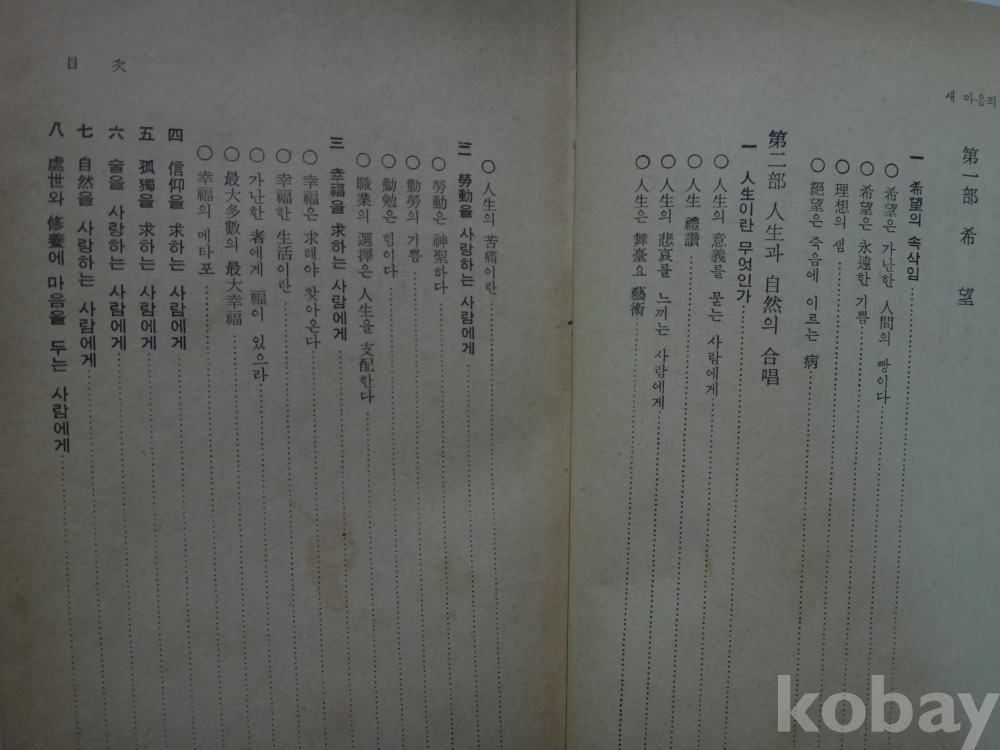 새 마음의
第一部 希望
一 希望의 속삭임
○ 希望은 가난한 人間의 빵이다
○ 希望은 永遠한 기쁨
○ 理想의 샘
○ 絕望은 죽음에 이르는 病
第二部 人生과 自然의 合唱
一 人生이란 무엇인가
○ 人生의 意義를 묻는 사람에게
○ 人生 禮讚
○ 人生의 悲哀를 느끼는 사람에게
○ 人生은 舞臺요 藝術
○ 人生의 苦痛이란
二 勞動을 사랑하는 사람에게
○ 勞動은 神聖하다
○ 勤勞의 기쁨
○ 勤勉은 힘이다
○ 職業의 選擇은 人生을 支配한다
三 幸福을 求하는 사람에게
○ 幸福은 求해야 찾아온다
○ 幸福한 生活이란
○ 가난한 者에게 福이 있으라
○ 最大多數의 最大幸福
○ 幸福의 메타포
四 信仰을 求하는 사람에게
五 孤獨을 求하는 사람에게
六 술을 사랑하는 사람에게
七 自然을 사랑하는 사람에게
八 處世와 修養에 마음을 두는 사람에게
目次
kobay